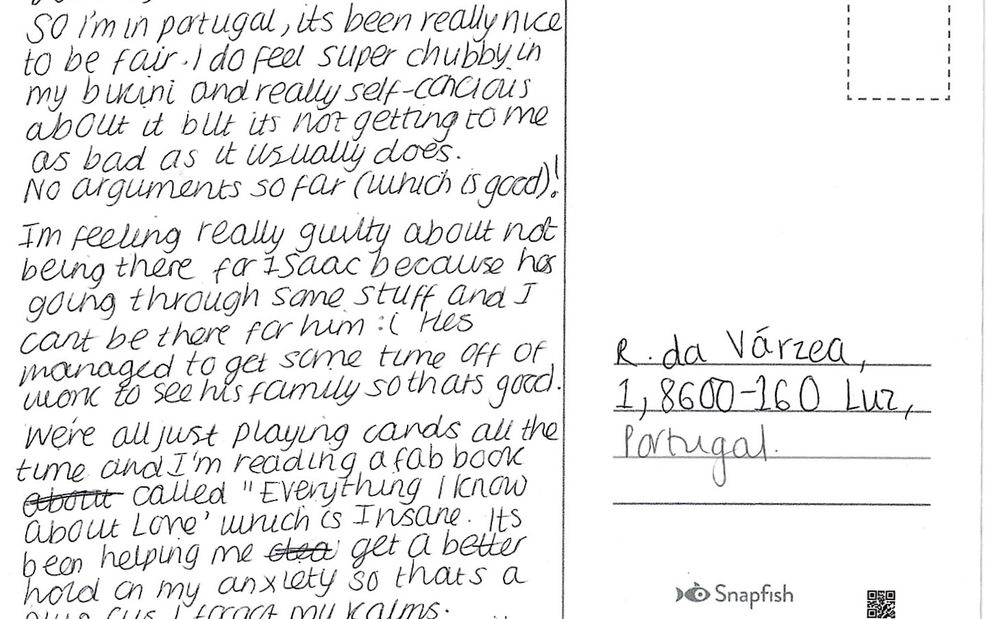 SO i'm in portugal, its been really nice
to be fair. I do feel super chubby in
my bikini and really self-concious
about it but its not getting to me
as bad as it usually does.
No arguments so far (which is good)!
Im feeling really guilty about not
being there for Isaac because hes
going through some stuff and I
cant be there for him :( Hes
managed to get some time off of
work to see his family so thats good.
We're all just playing cards all the
time and I'm reading a fab book
about called "Everything I know
About Love' which is Insane. Its
been helping me get a better
hold on my anxiety so thats a
plus cus I forgot my Kalms.
R. da Várzea,
1, 8600-160 Luz,
Portugal.
Snapfish